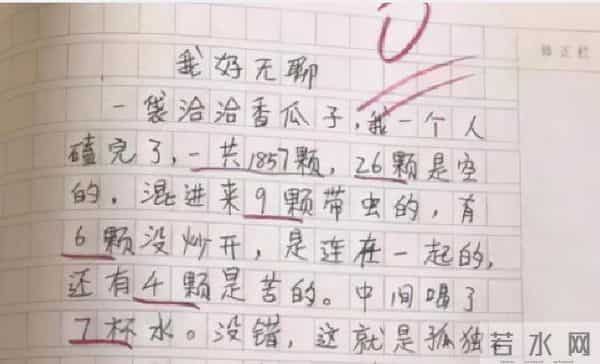 修正栏
我好无聊
一袋洽洽香瓜子，我一个人
磕完了，一共1857颗，26颗是空
的，混进来9颗带虫的，有
6颗没炒开，是连在一起的，
还有4颗是苦的。中间喝了
7杯水。没错，这就是孤独
若水网